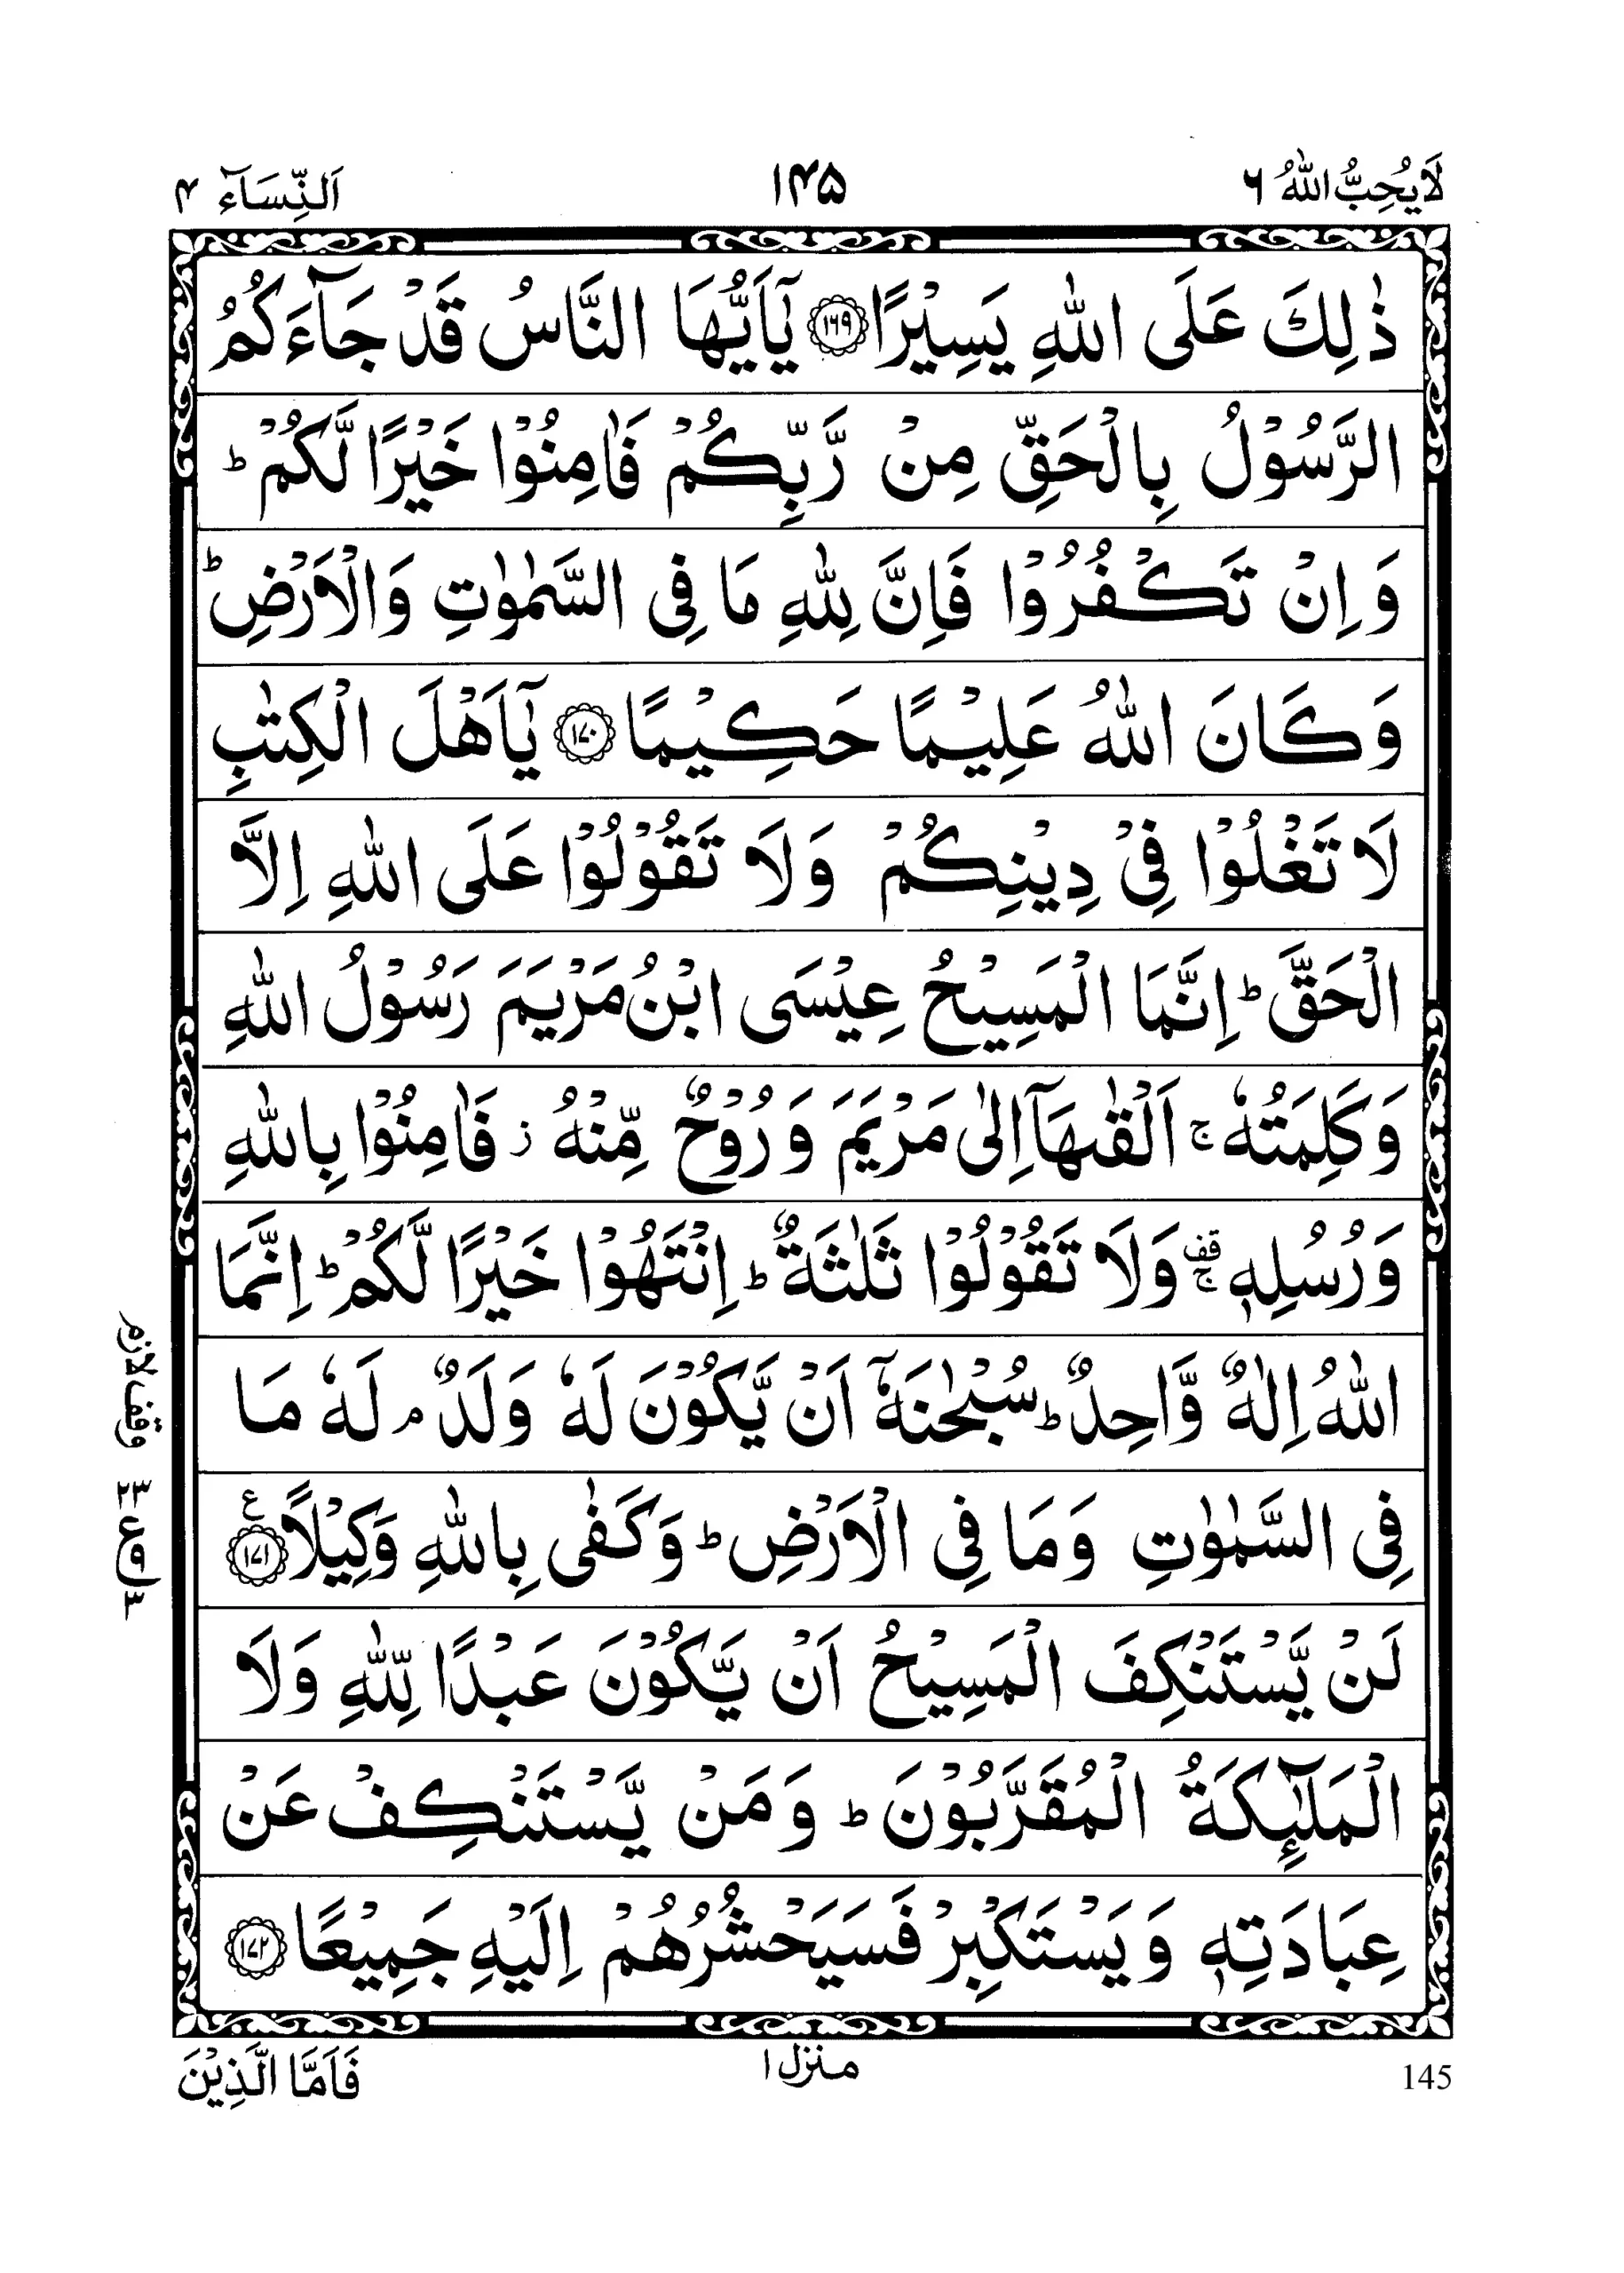 لَا يُحِبُّ اللّٰهُ ۶
۱۴۵
اَلنِّسَآء ۴
ذٰلِكَ عَلَى اللّٰهِ يَسِيْرًا ۝۱۶۹ يٰۤاَيُّهَا النَّاسُ قَدْ جَآءَكُمُ
الرَّسُوْلُ بِالْحَقِّ مِنْ رَّبِّكُمْ فَاٰمِنُوْا خَيْرًا لَّكُمْ ؕ
وَاِنْ تَكْفُرُوْا فَاِنَّ لِلّٰهِ مَا فِى السَّمٰوٰتِ وَالْاَرْضِ ؕ
وَكَانَ اللّٰهُ عَلِيْمًا حَكِيْمًا ۝۱۷۰ يٰۤاَهْلَ الْكِتٰبِ
لَا تَغْلُوْا فِىْ دِيْنِكُمْ وَلَا تَقُوْلُوْا عَلَى اللّٰهِ اِلَّا
الْحَقَّ ؕ اِنَّمَا الْمَسِيْحُ عِيْسَى ابْنُ مَرْيَمَ رَسُوْلُ اللّٰهِ
وَكَلِمَتُهٗ ۚ اَلْقٰىهَاۤ اِلٰى مَرْيَمَ وَرُوْحٌ مِّنْهُ ز فَاٰمِنُوْا بِاللّٰهِ
وَرُسُلِهٖ قف ۚ وَلَا تَقُوْلُوْا ثَلٰثَةٌ ؕ اِنْتَهُوْا خَيْرًا لَّكُمْ ؕ اِنَّمَا
اللّٰهُ اِلٰهٌ وَّاحِدٌ ؕ سُبْحٰنَهٗۤ اَنْ يَّكُوْنَ لَهٗ وَلَدٌ ۘ لَهٗ مَا
فِى السَّمٰوٰتِ وَمَا فِى الْاَرْضِ ؕ وَكَفٰى بِاللّٰهِ وَكِيْلًا ۝۱۷۱ ع
لَنْ يَّسْتَنْكِفَ الْمَسِيْحُ اَنْ يَّكُوْنَ عَبْدًا لِّلّٰهِ وَلَا
الْمَلٰٓئِكَةُ الْمُقَرَّبُوْنَ ؕ وَمَنْ يَّسْتَنْكِفْ عَنْ
عِبَادَتِهٖ وَيَسْتَكْبِرْ فَسَيَحْشُرُهُمْ اِلَيْهِ جَمِيْعًا ۝۱۷۲
وقف لازم
فَاَمَّا الَّذِيْنَ
منزل ۱
145